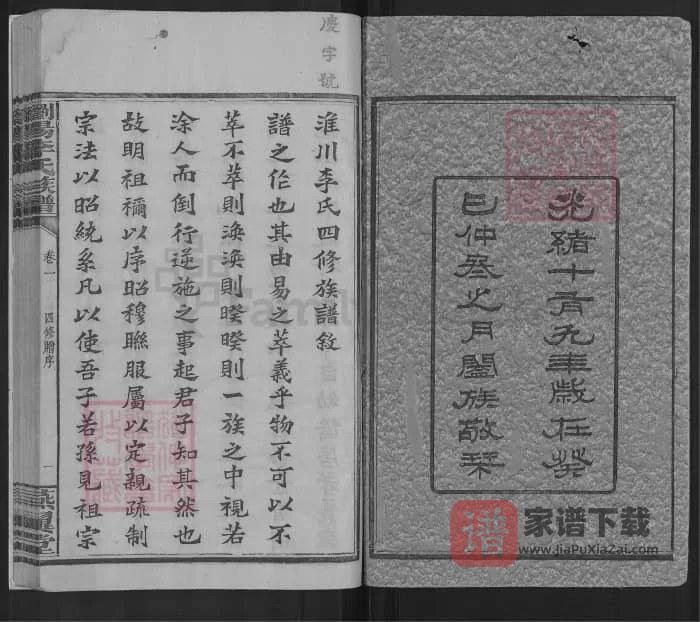 光緒十有九年歲在癸
巳仲叁之月闔族敬栞
慶字號
淮川李氏四修族譜敘
譜之作也其由易之萃義乎物不可以不
萃不萃則渙渙則暌暌則一族之中視若
涂人而倒行逆施之事起君子知其然也
故明祖禰以序昭穆聯服屬以定親疏制
宗法以昭統系凡以使吾子若孫見祖宗
瀏陽李氏族譜
卷一
四修贈序
一
家谱下载
www.JiaPuXiaZai.com
谱